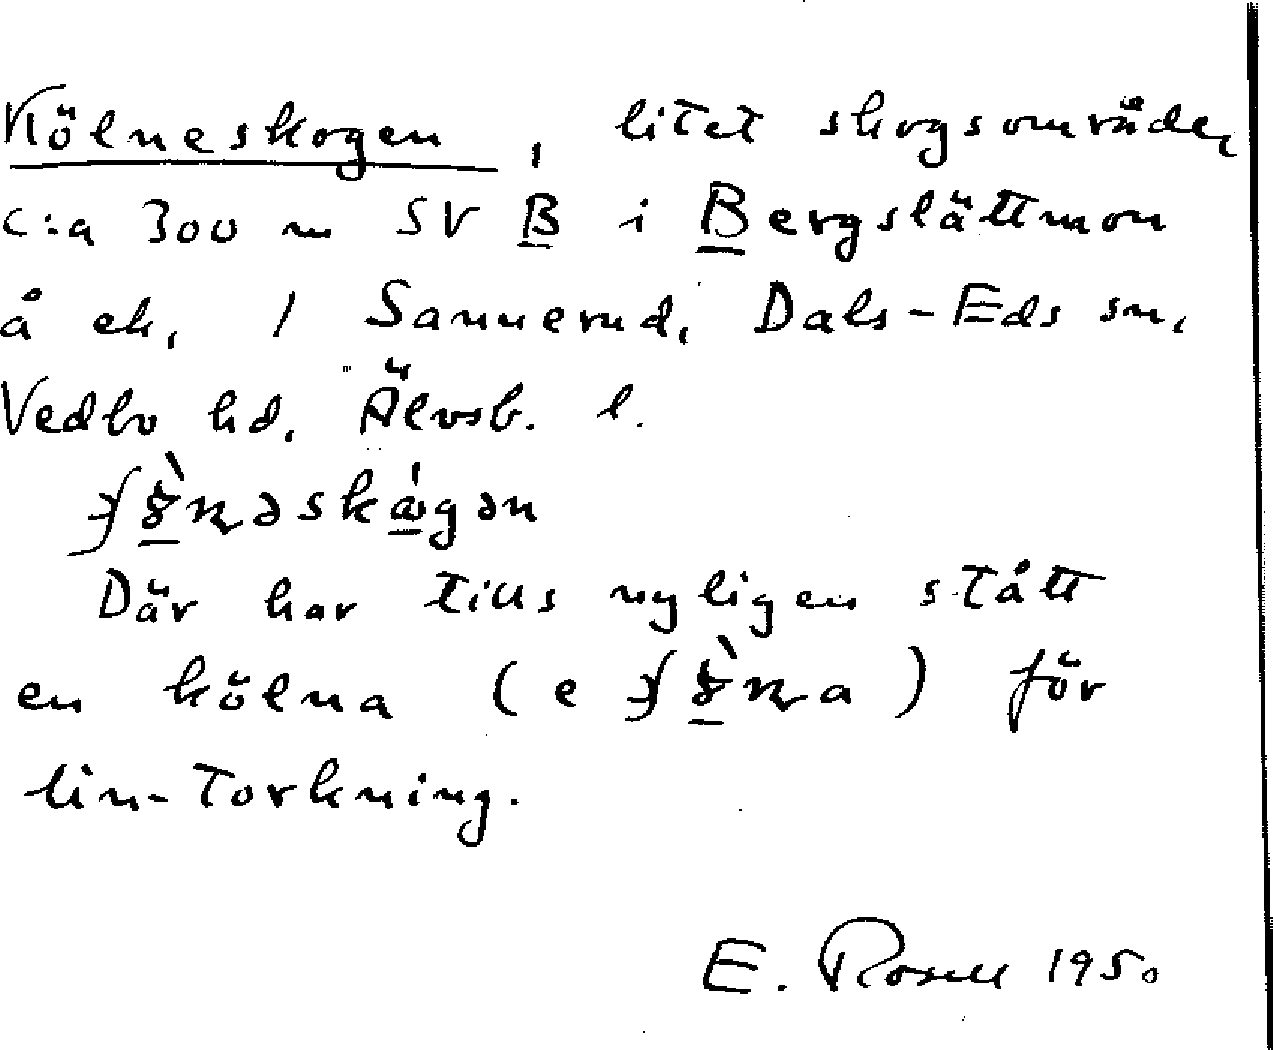 Kölneskogen, litet skogsområde,
c:a 300 m SV B i Bergslättmon
å ek. 1 Sannerud, Dals-Eds sn,
Vedbo hd. Älvsb. l.
Där har tills nyligen stått
en kölna (e) för
lin-torkning.
E. Rosell 1950